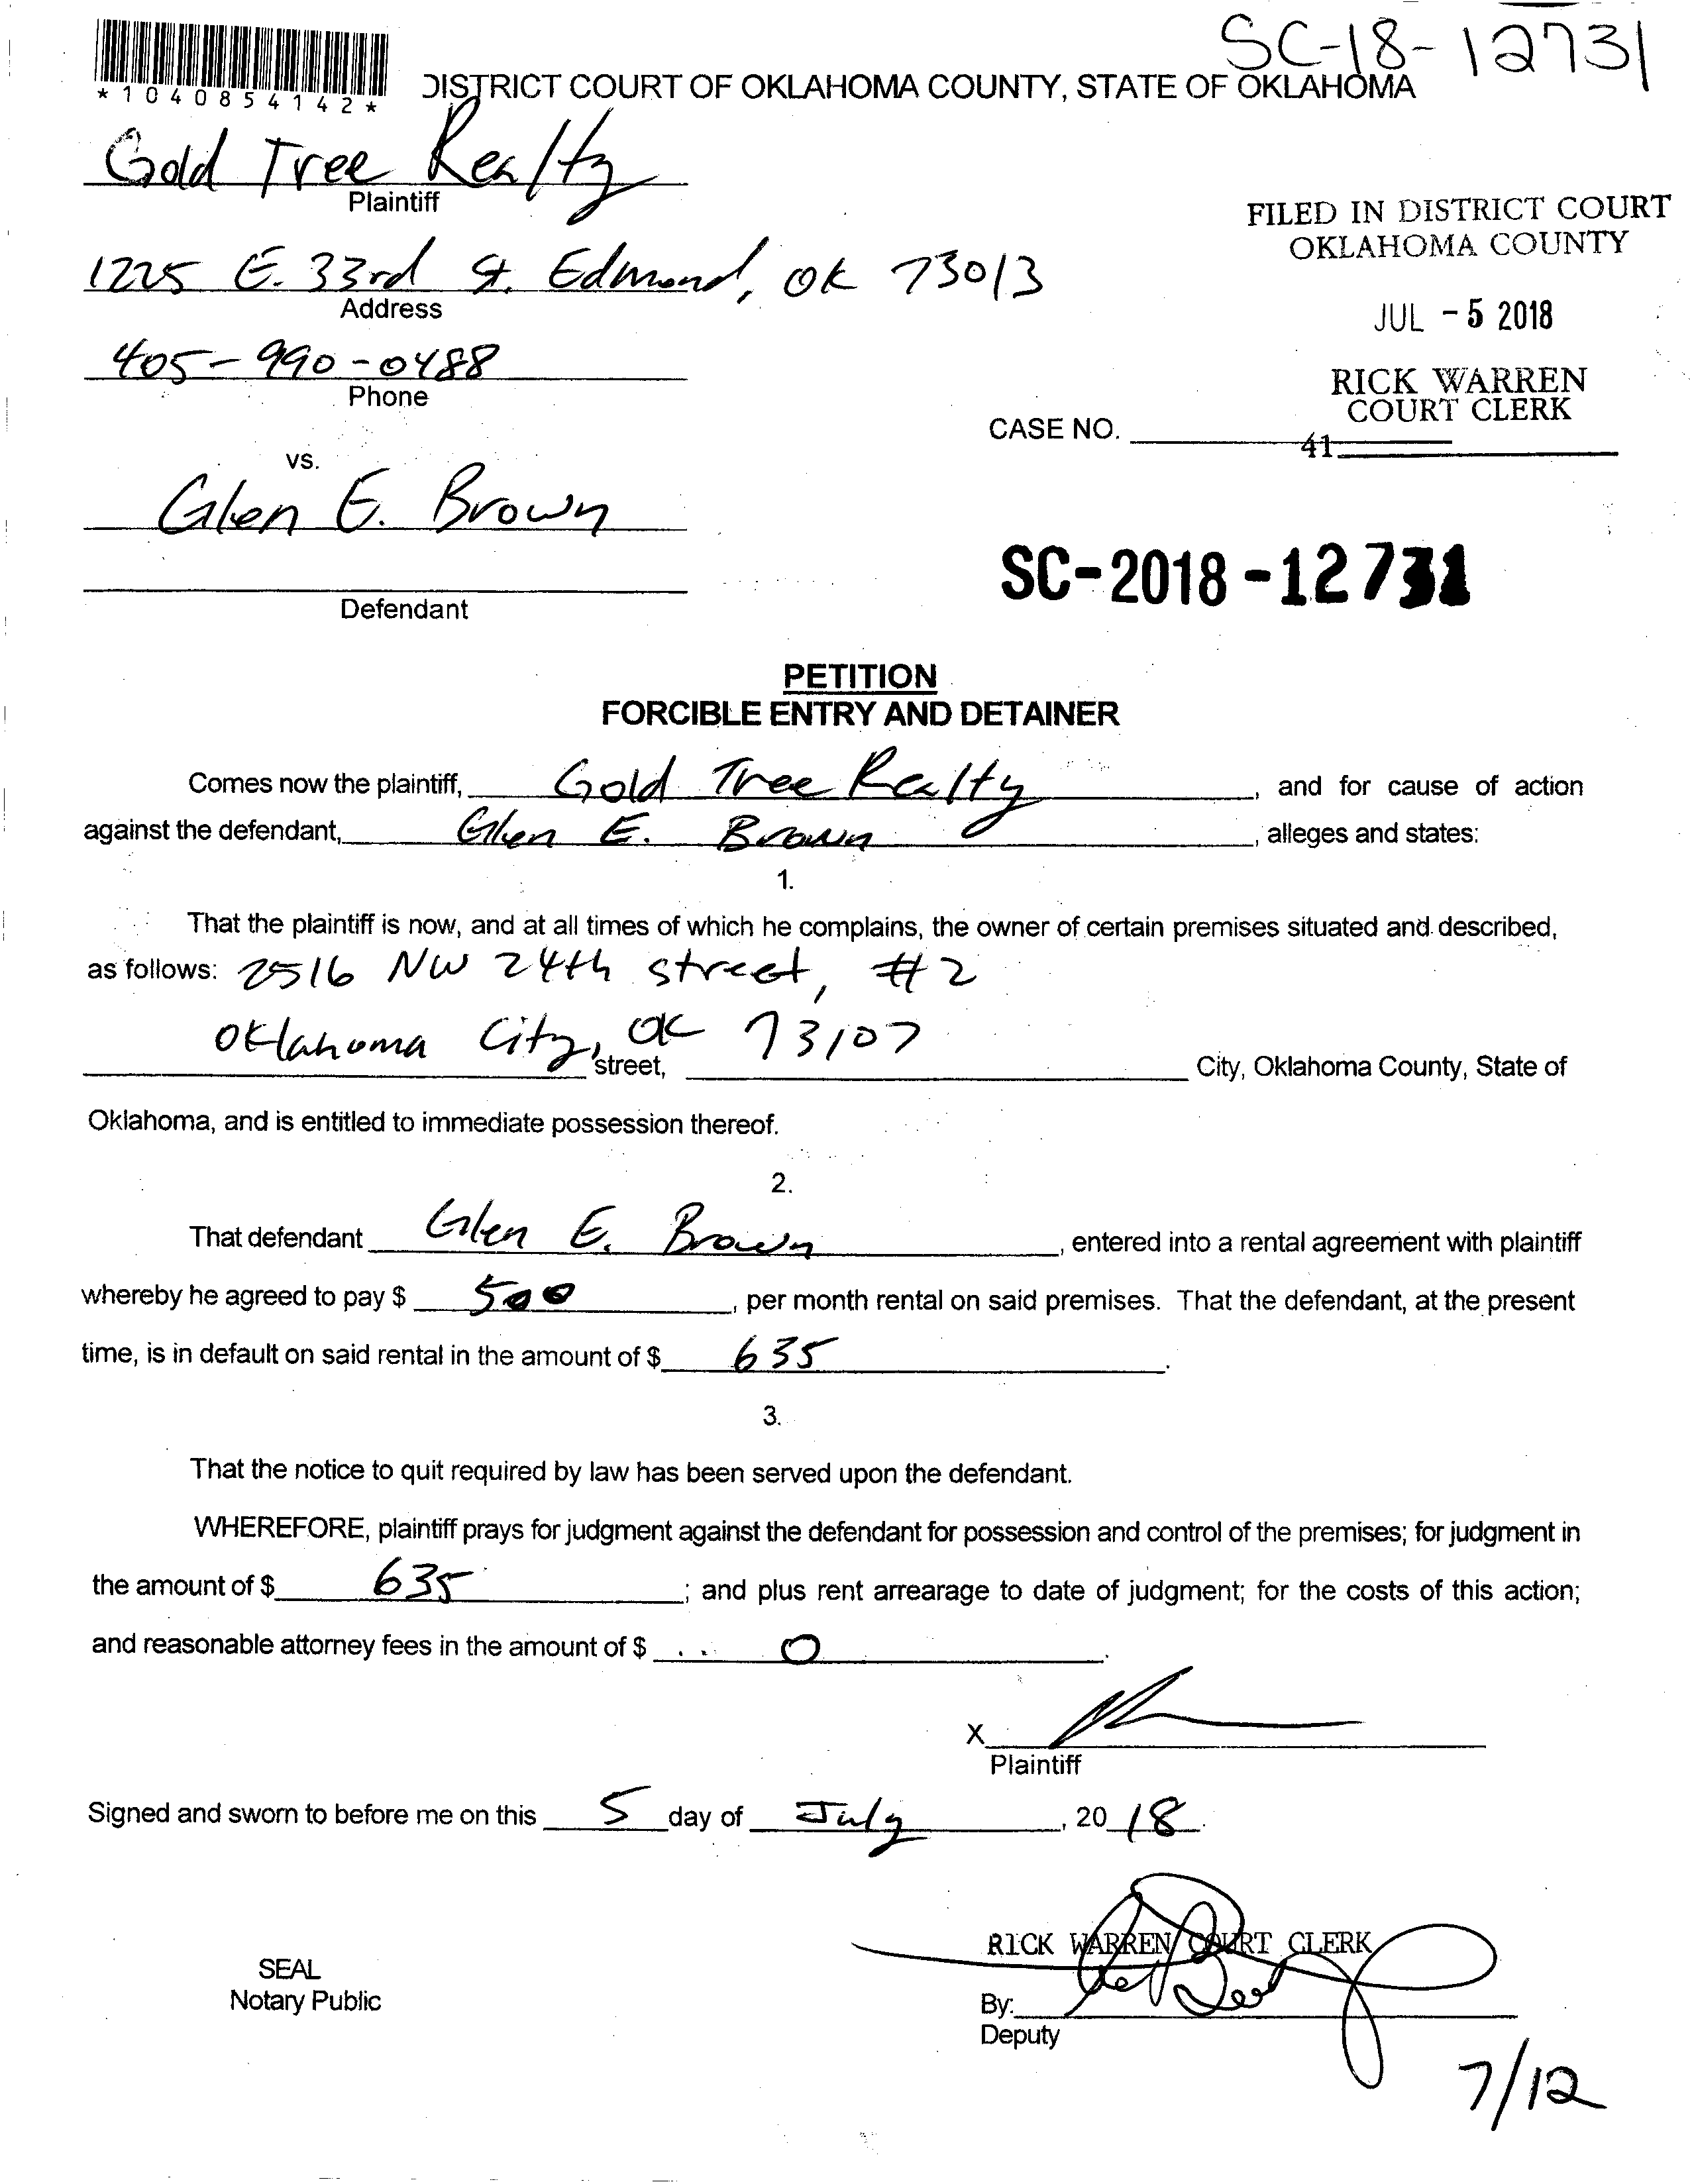 SC-18-12731
*1040854142*
DISTRICT COURT OF OKLAHOMA COUNTY, STATE OF OKLAHOMA
Gold Tree Realty
Plaintiff
FILED IN DISTRICT COURT
OKLAHOMA COUNTY
1225 E. 33rd St. Edmond, OK 73013
Address
JUL - 5 2018
405-990-0488
Phone
RICK WARREN
COURT CLERK
CASE NO.
41
vs.
Glen E. Brown
Defendant
SC-2018-12731
PETITION
FORCIBLE ENTRY AND DETAINER
Comes now the plaintiff, Gold Tree Realty, and for cause of action
against the defendant, Glen E. Brown, alleges and states:
1.
That the plaintiff is now, and at all times of which he complains, the owner of certain premises situated and described,
as follows: 2516 NW 24th street, #2
Oklahoma City, OK 73107
street, City, Oklahoma County, State of
Oklahoma, and is entitled to immediate possession thereof.
2.
That defendant Glen E. Brown, entered into a rental agreement with plaintiff
whereby he agreed to pay $ 500, per month rental on said premises. That the defendant, at the present
time, is in default on said rental in the amount of $ 635.
3.
That the notice to quit required by law has been served upon the defendant.
WHEREFORE, plaintiff prays for judgment against the defendant for possession and control of the premises; for judgment in
the amount of $ 635; and plus rent arrearage to date of judgment; for the costs of this action;
and reasonable attorney fees in the amount of $ 0.
X
Plaintiff
Signed and sworn to before me on this 5 day of July, 20 18.
RICK WARREN COURT CLERK
SEAL
Notary Public
By:
Deputy
7/12